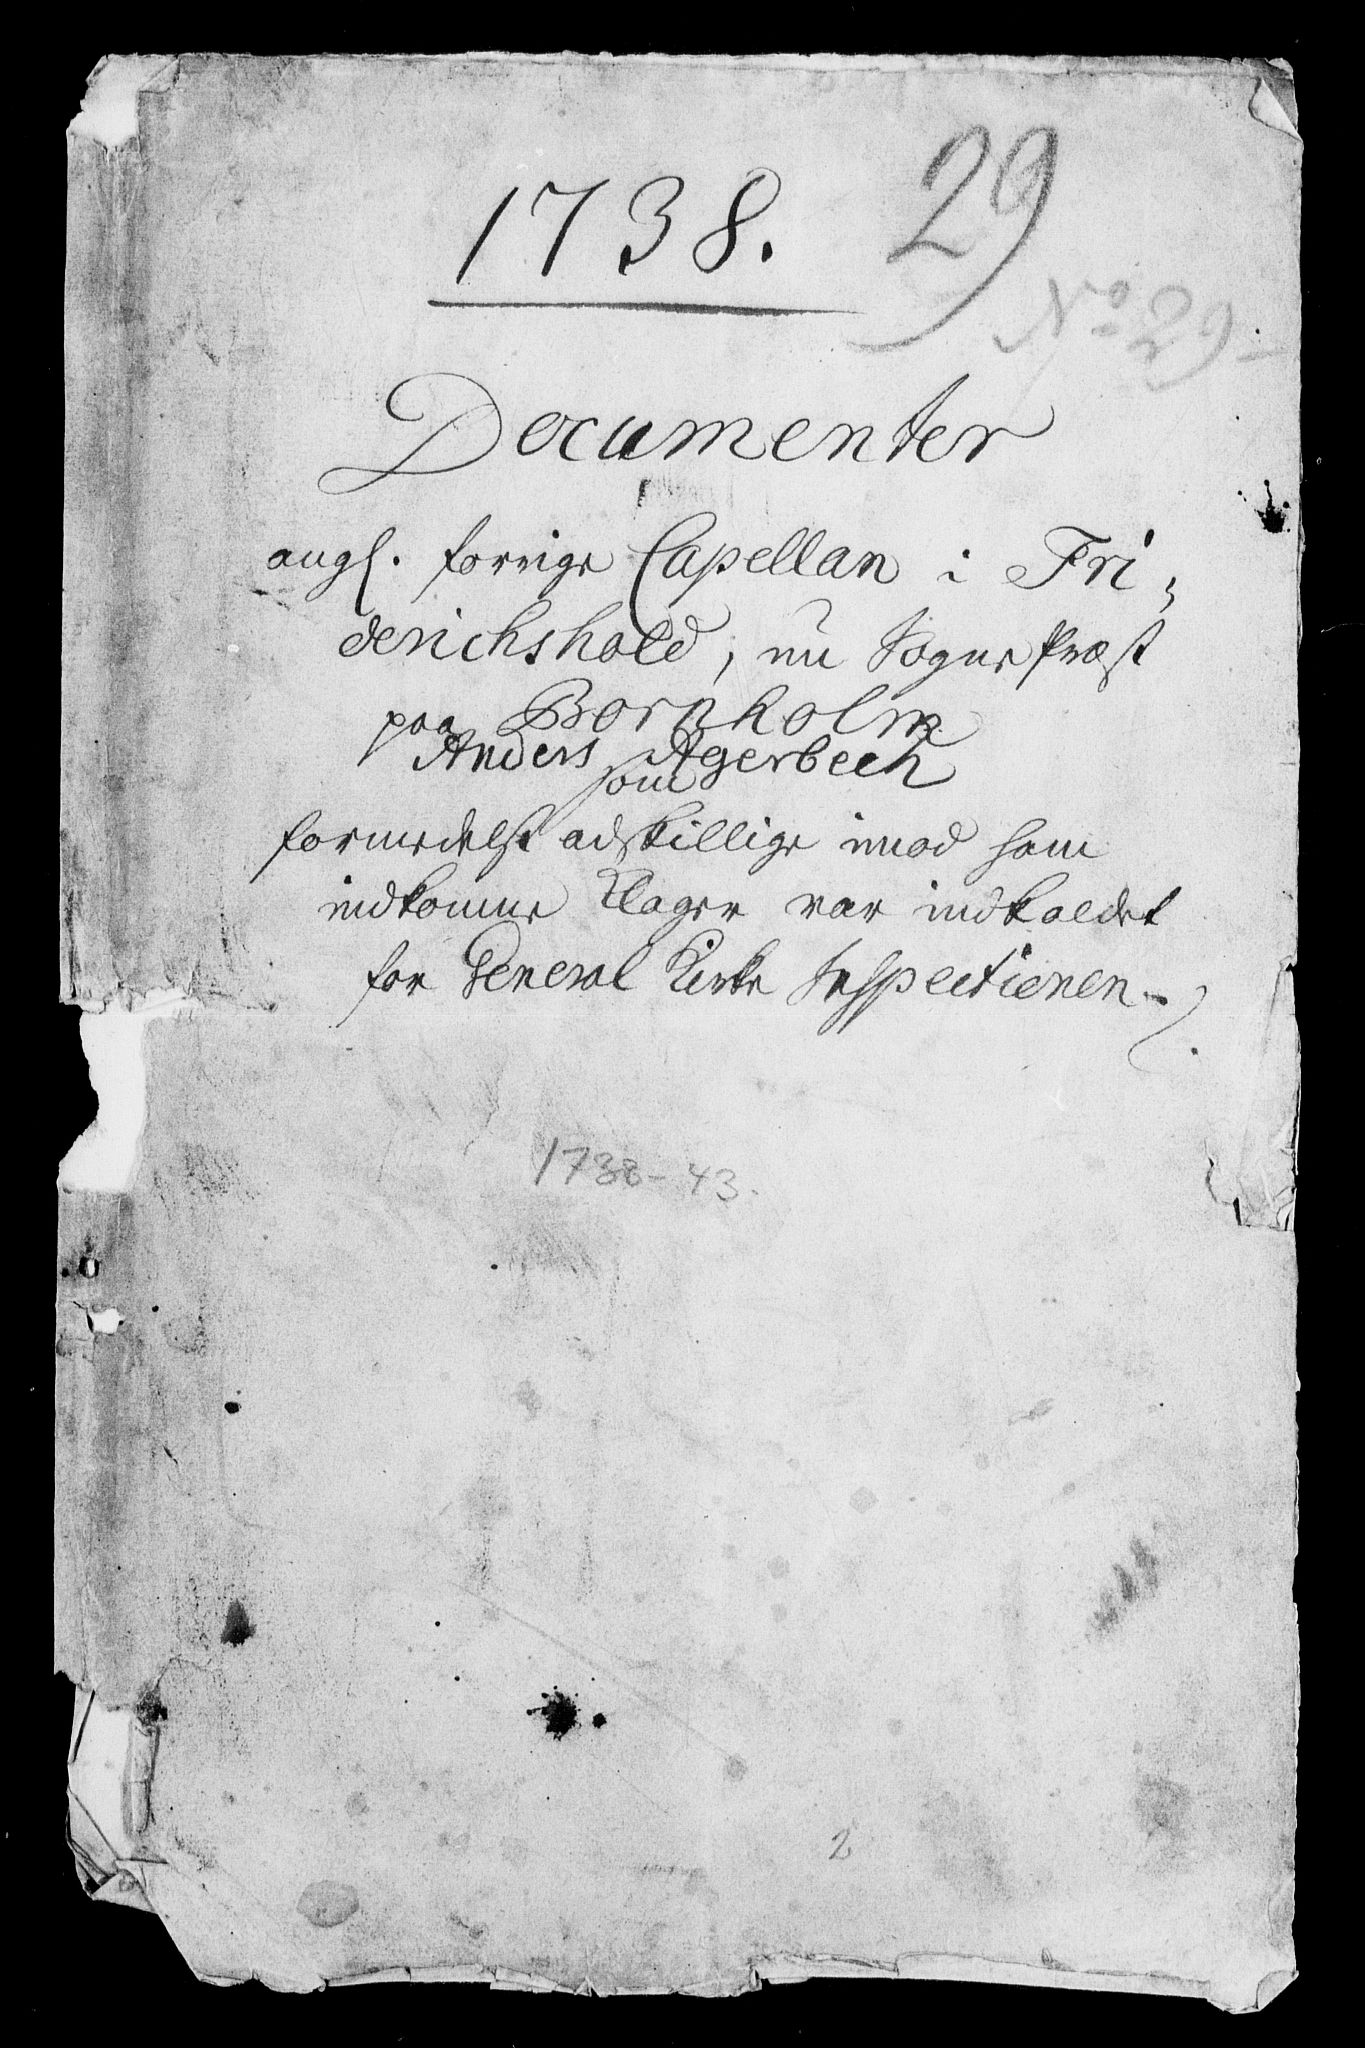 1738.
29
No 29
Documenter
angl. forrige Capellan i Fri,
derichshald, nu Sogne Præst
paa Bornholm
Anders Agerbech
som
formedelst adskillige imod ham
indkomne Klager var indkaldet
for General Kirke Inspectionen.
1738-43.
2